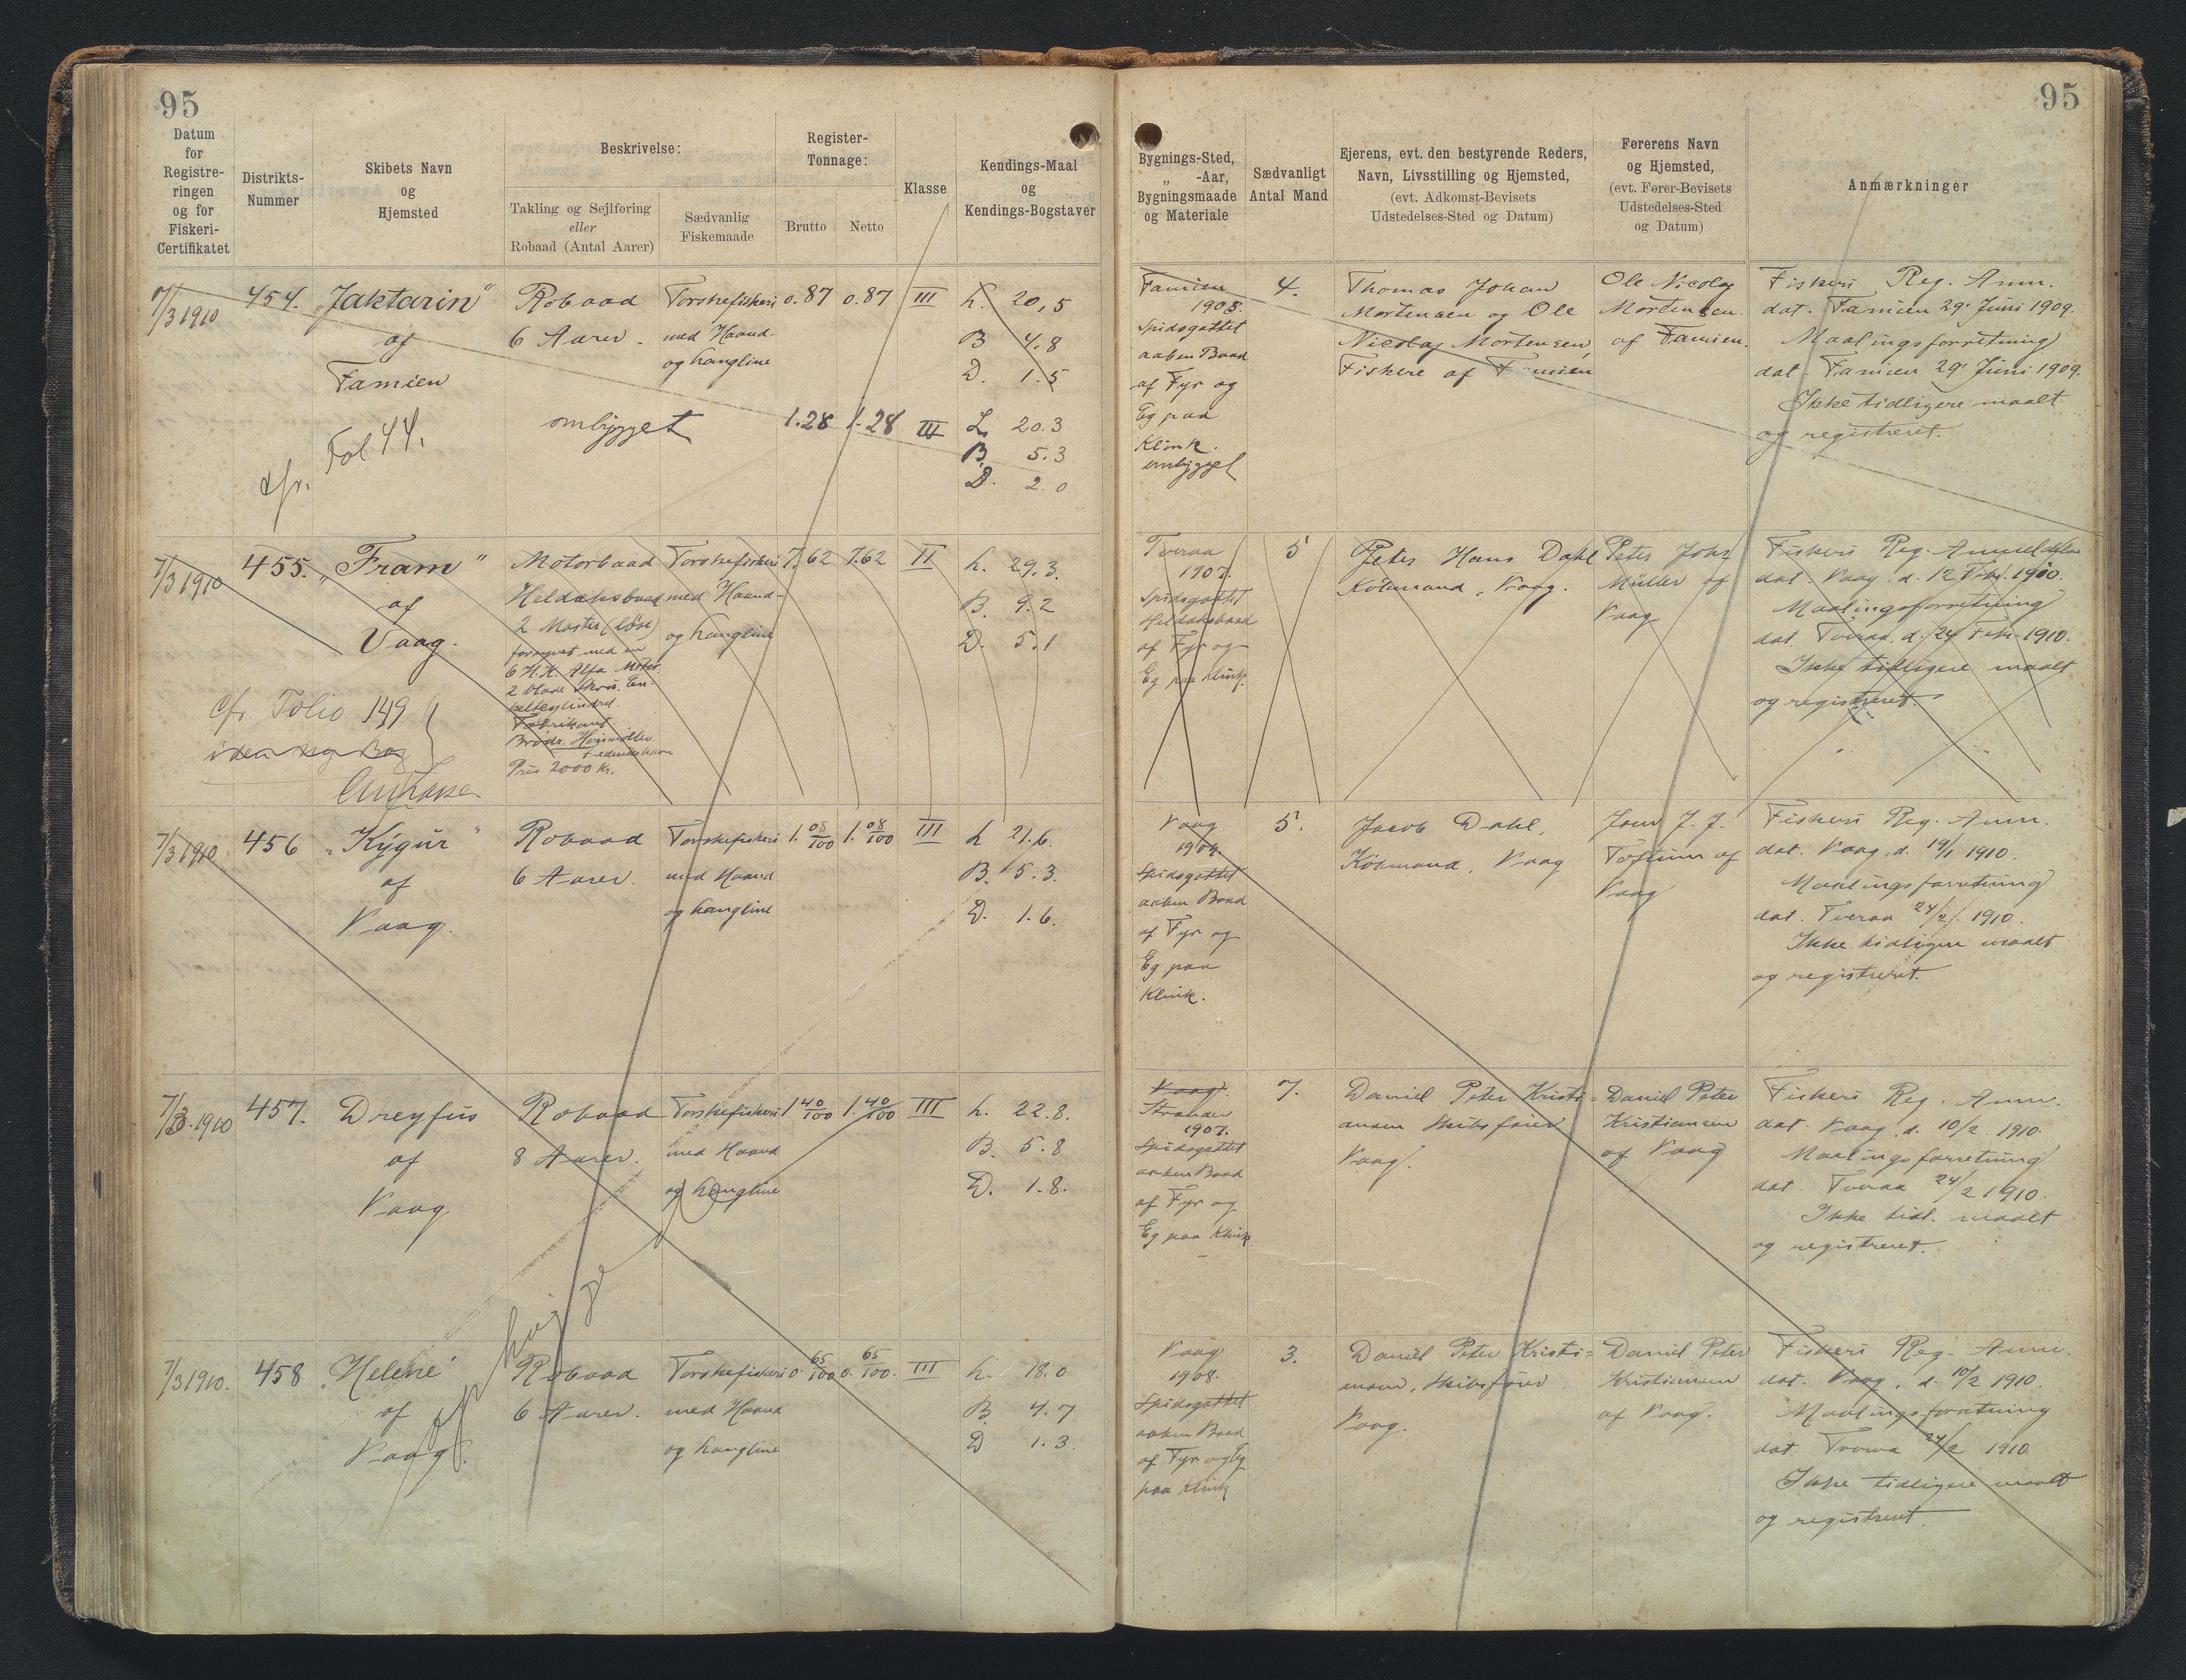 95
95
Datum
for
Registre-
ringen
og for
Fiskeri-
Certifikatet
Distrikts-
Nummer
Skibets Navn
og
Hjemsted
Beskrivelse:
Takling og Sejlføring
eller
Robaad (Antal Aarer)
Sædvanlig
Fiskemaade
Register-
Tonnage:
Brutto
Netto
Klasse
Kendings-Maal
og
Kendings-Bogstaver
Bygnings-Sted,
„ -Aar,
Bygningsmaade
og Materiale
Sædvanligt
Antal Mand
Ejerens, evt. den bestyrende Reders,
Navn, Livsstilling og Hjemsted,
(evt. Adkomst-Bevisets
Udstedelses-Sted og Datum)
Førerens Navn
og Hjemsted,
(evt. Fører-Bevisets
Udstedelses-Sted
og Datum)
Anmærkninger
7/3 1910
454.
Jaktarin"
af
Famien
cfr. Fol 44.
Robaad
6 Aarer.
ombygget
Torskefiskeri
med Haand-
og Langline
0.87
0.87
III
L. 20,5
B 4.8
D. 1.5
1.28
1.28
III
L. 20.3
B. 5.3
D. 2.0
Famien
1908.
Spidsgattet
aaben Baad
af Fyr og
Eg paa
Klink.
ombygget
4.
Thomas Johan
Mortensen og Ole
Nicolaj Mortensen,
Fiskere af Famien
Ole Nicolaj
Mortensen
af Famien.
Fiskeri Reg. Anm.
dat. Famien 29' Juni 1909.
Maalingsforretning
dat. Famien 29' Juni 1909.
Ikke tidligere maalt
og registreret.
7/3 1910
455.
„Fram"
af
Vaag.
cfr. Folio 149
Motorbaad
2 Master (løse)
forsynet med en
6 H.K. Alfa Motor
2 blade Skrue. En-
keltcylindret.
Fabrikant.
Brødr. Houmøller
Frederikshavn
Pris 2000 Kr.
Torskefiskeri
med Haand-
og Langline
7.62
7.62
II
L. 29.3.
B. 9.2
D. 5.1
Tveraa
1907.
Spidsgattet
af Fyr og
Eg paa Klink.
5
Peter Hans Dahl
Købmand, Vaag.
Peter Johs
Müller af
Vaag
Fiskeri Reg. Anmeldelse
dat. Vaag d. 12 Febr. 1910.
Maalingsforretning
dat. Tveraa, d. 24 Febr. 1910.
Ikke tidligere maalt
og registreret.
7/3 1910
456
„Kýgúr"
af
Vaag.
Robaad
6 Aarer.
Torskefiskeri
med Haand
og Langline
1. 08/100
1. 08/100
III
L 21.6.
B. 5.3.
D. 1.6.
Vaag
1909.
Spidsgattet
aaben Baad
af Fyr og
Eg paa
Klink.
5.
Jacob Dahl,
Købmand, Vaag
Joen J. J.
Toftum af
Vaag
Fiskeri Reg. Anm.
dat. Vaag, d. 19/1 1910.
Maalingsforretning
dat. Tveraa 24/2 1910.
Ikke tidligere maalt
og registreret.
7/3 1910
457.
Dreyfus
af
Vaag
Robaad
8 Aarer.
Torskefiskeri
med Haand
og Langline
1 40/100
1. 40/100
III
L. 22.8.
B. 5.8
D. 1.8.
Vaag.
1907.
Spidsgattet
aaben Baad
af Fyr og
Eg paa Klink
7.
Daniel Peter Kristi-
ansen Skibsfører
Vaag.
Daniel Peter
Kristiansen
af Vaag
Fiskeri Reg. Anm.
dat. Vaag, d. 10/2 1910.
Maalingsforretning
dat. Tveraa 24/2 1910.
Ikke tidl. maalt
og registreret.
7/3 1910.
458
„Helene"
af
Vaag.
Robaad
6 Aarer.
Torskefiskeri
med Haand
og Langline
0. 65/100
0. 65/100.
III
L. 18.0
B. 4.7
D 1.3.
Vaag
1908.
Spidsgattet
aaben Baad
af Fyr og Eg
paa Klink
3.
Daniel Peter Kristi-
ansen, Skibsfører
Vaag.
Daniel Peter
Kristiansen
af Vaag.
Fiskeri Reg. Anm.
dat. Vaag, d. 10/2 1910.
Maalingsforretning
dat. Tveraa 24/2 1910.
Ikke tidligere maalt
og registreret.